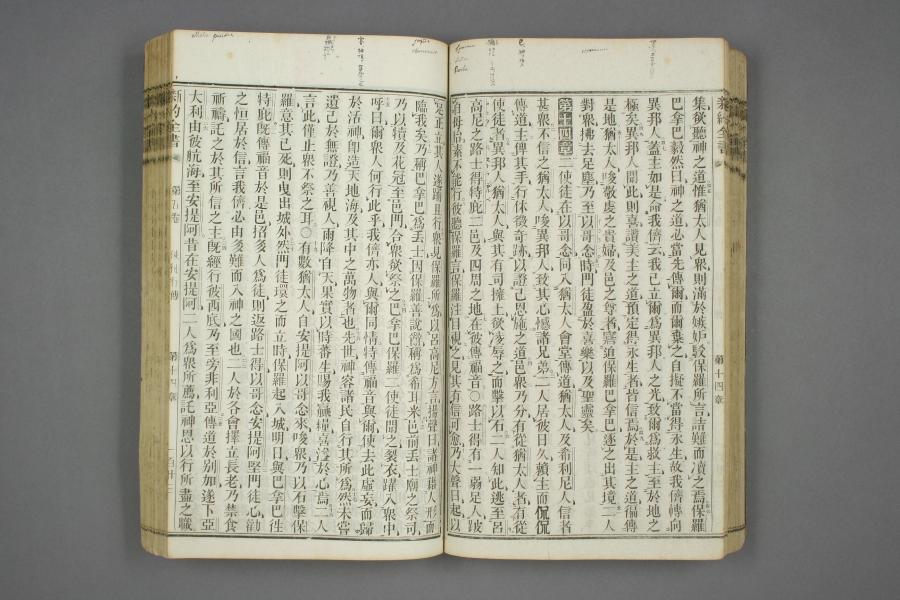 新約全書
第十四章
集欲聽神之道惟猶太人見衆則滿於嫉妒駁保羅所言詰難而瀆之焉保羅
巴拿巴毅然曰神之道必當先傳爾而爾棄之自擬不當得永生故我儕轉向
異邦人蓋主如是命我儕云我已立爾爲異邦人之光致爾爲救主至於地之
極矣異邦人聞此則喜讚美主之道預定得永生者皆信焉於是主之道徧傳
是地猶太人唆敬虔之貴婦及邑之尊者窘迫保羅巴拿巴逐之出其境二人
對衆拂去足塵乃至以哥念時門徒盈於喜樂以及聖靈矣
第十四章二使徒在以哥念同入猶太人會堂傳道猶太人及希利尼人信者
甚衆不信之猶太人唆異邦人致其心憾諸兄弟二人居彼日久賴主而侃侃
傳道主俾其手行休徵奇跡以證己恩施之道邑衆乃分有從猶太人者有從
使徒者異邦人猶太人與其有司擁上欲凌辱之而擊以石二人知此逃至呂
高尼之路士得特庇二邑及四周之地在彼傳福音○路士得有一弱足人跛
自母胎素不能行彼聽保羅言保羅注目視之見其有信可愈乃大聲曰起以
足正立其人遂躍且行衆見保羅所爲以呂高尼方言揚聲曰諸神藉人形而
臨我矣乃稱巴拿巴爲丟士因保羅善說爰稱爲希耳米邑前丟士廟之祭司
乃以犢及花冠至邑門合衆欲祭之巴拿巴保羅二使徒聞之裂衣躍入衆中
呼曰爾衆人何行此乎我儕亦人與爾同情特傳福音與爾使去此虛妄而歸
於活神卽造天地海及其中之萬物者也先世神容諸民自行其所爲然未嘗
遺己於無證乃善視人雨降自天果實以時蕃生賜我贏糧喜溢於心焉二人
言此僅止衆不祭之耳○有數猶太人自安提阿以哥念來唆衆乃以石擊保
羅意其已死則曳出城外然門徒環之而立時保羅起入城明日與巴拿巴往
特庇旣傳福音於是邑招多人爲徒則返路士得以哥念安提阿堅門徒心勸
之恒居於信言我儕必由多難而入神之國也二人於各會擇立長老乃禁食
祈禱託之於其所信之主旣經行彼西底乃至旁非利亞傳道於別加遂下亞
大利由彼航海至安提阿昔在安提阿二人爲衆所薦託神恩以行所盡之職
新約全書
第五卷
使徒行傳
第十四章